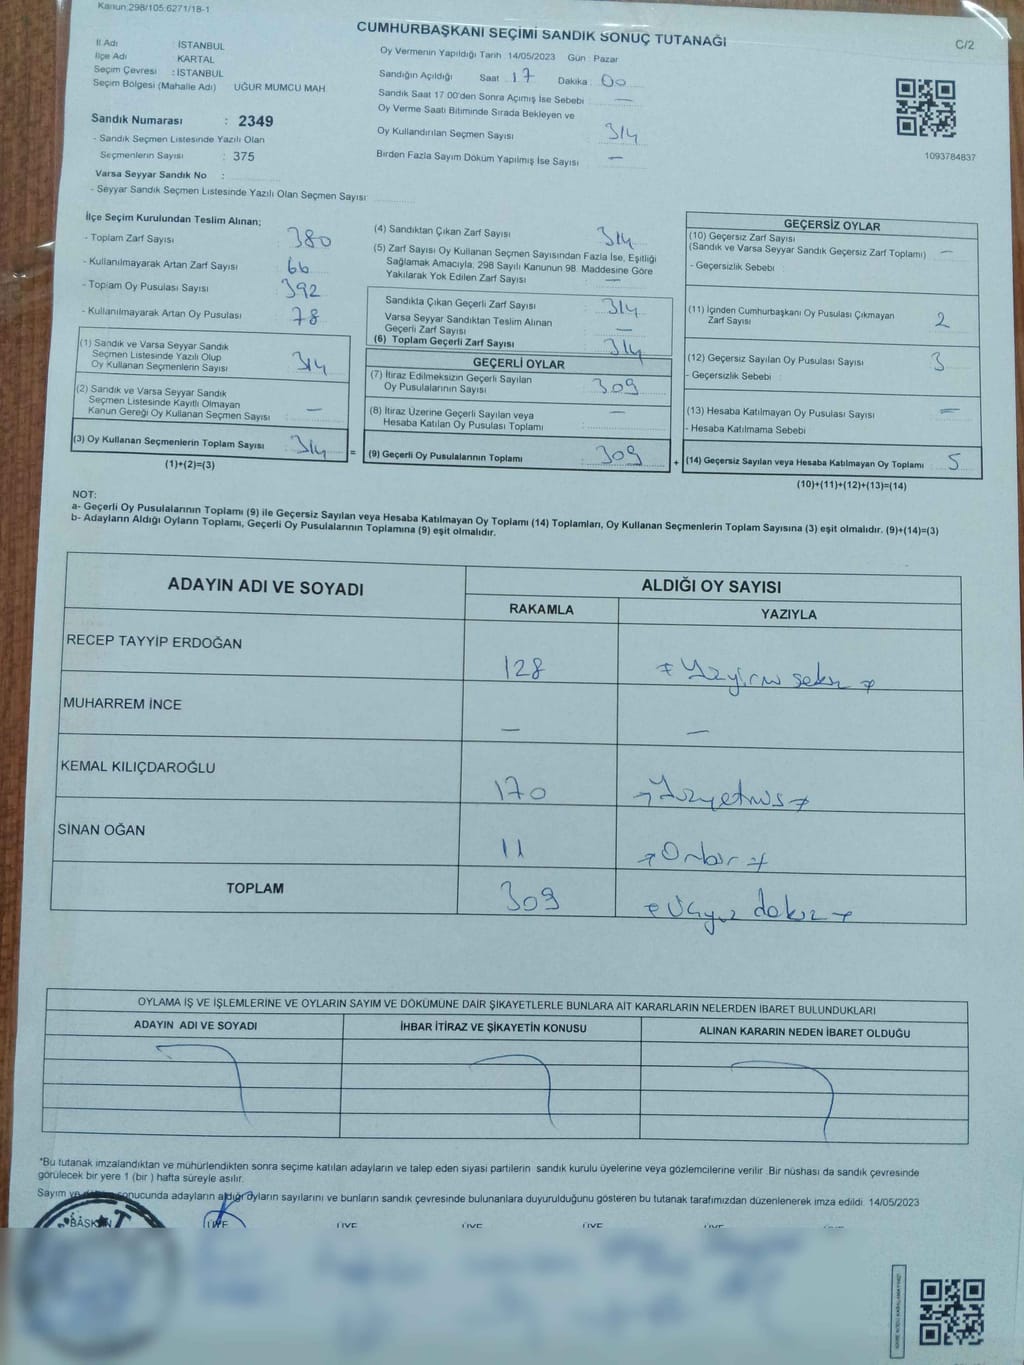 Kanun:298/105:6271/18-1
CUMHURBAŞKANI SEÇİMİ SANDIK SONUÇ TUTANAĞI
C/2
İl Adı : İSTANBUL
İlçe Adı : KARTAL
Seçim Çevresi : İSTANBUL
Seçim Bölgesi (Mahalle Adı) UĞUR MUMCU MAH
Sandık Numarası : 2349
- Sandık Seçmen Listesinde Yazılı Olan
Seçmenlerin Sayısı : 375
Varsa Seyyar Sandık No :
- Seyyar Sandık Seçmen Listesinde Yazılı Olan Seçmen Sayısı:
Oy Vermenin Yapıldığı Tarih 14/05/2023 Gün : Pazar
Sandığın Açıldığı Saat : 17 Dakika : 00
Sandık Saat 17 00'den Sonra Açımış İse Sebebi : —
Oy Verme Saati Bitiminde Sırada Bekleyen ve
Oy Kullandırılan Seçmen Sayısı : 314
Birden Fazla Sayım Döküm Yapılmış İse Sayısı : —
1093784837
İlçe Seçim Kurulundan Teslim Alınan;
- Toplam Zarf Sayısı : 380
- Kullanılmayarak Artan Zarf Sayısı : 66
- Toplam Oy Pusulası Sayısı : 392
- Kullanılmayarak Artan Oy Pusulası : 78
(1) Sandık ve Varsa Seyyar Sandık
Seçmen Listesinde Yazılı Olup
Oy Kullanan Seçmenlerin Sayısı : 314
(2) Sandık ve Varsa Seyyar Sandık
Seçmen Listesinde Kayıtlı Olmayan
Kanun Gereği Oy Kullanan Seçmen Sayısı : —
(3) Oy Kullanan Seçmenlerin Toplam Sayısı : 314
(1)+(2)=(3)
(4) Sandıktan Çıkan Zarf Sayısı : 314
(5) Zarf Sayısı Oy Kullanan Seçmen Sayısından Fazla İse, Eşitliği
Sağlamak Amacıyla; 298 Sayılı Kanunun 98. Maddesine Göre
Yakılarak Yok Edilen Zarf Sayısı : —
Sandıkta Çıkan Geçerli Zarf Sayısı : 314
Varsa Seyyar Sandıktan Teslim Alınan
Geçerli Zarf Sayısı : —
(6) Toplam Geçerli Zarf Sayısı : 314
GEÇERLİ OYLAR
(7) İtiraz Edilmeksizin Geçerli Sayılan
Oy Pusulalarının Sayısı : 309
(8) İtiraz Üzerine Geçerli Sayılan veya
Hesaba Katılan Oy Pusulası Toplamı : —
= (9) Geçerli Oy Pusulalarının Toplamı : 309
GEÇERSİZ OYLAR
(10) Geçersiz Zarf Sayısı
(Sandık ve Varsa Seyyar Sandık Geçersiz Zarf Toplamı) : —
- Geçersizlik Sebebi :
(11) İçinden Cumhurbaşkanı Oy Pusulası Çıkmayan
Zarf Sayısı : 2
(12) Geçersiz Sayılan Oy Pusulası Sayısı : 3
- Geçersizlik Sebebi :
(13) Hesaba Katılmayan Oy Pusulası Sayısı : —
- Hesaba Katılmama Sebebi
+ (14) Geçersiz Sayılan veya Hesaba Katılmayan Oy Toplamı : 5
(10)+(11)+(12)+(13)=(14)
NOT:
a- Geçerli Oy Pusulalarının Toplamı (9) ile Geçersiz Sayılan veya Hesaba Katılmayan Oy Toplamı (14) Toplamları, Oy Kullanan Seçmenlerin Toplam Sayısına (3) eşit olmalıdır. (9)+(14)=(3)
b- Adayların Aldığı Oyların Toplamı, Geçerli Oy Pusulalarının Toplamına (9) eşit olmalıdır.
ADAYIN ADI VE SOYADI ALDIĞI OY SAYISI
RAKAMLA YAZIYLA
RECEP TAYYİP ERDOĞAN 128 Yüzyirmi sekiz
MUHARREM İNCE — —
KEMAL KILIÇDAROĞLU 170 Yüzyetmiş
SİNAN OĞAN 11 Onbir
TOPLAM 309 Üçyüz dokuz
OYLAMA İŞ VE İŞLEMLERİNE VE OYLARIN SAYIM VE DÖKÜMÜNE DAİR ŞİKAYETLERLE BUNLARA AİT KARARLARIN NELERDEN İBARET BULUNDUKLARI
ADAYIN ADI VE SOYADI İHBAR İTİRAZ VE ŞİKAYETİN KONUSU ALINAN KARARIN NEDEN İBARET OLDUĞU
*Bu tutanak imzalandıktan ve mühürlendikten sonra seçime katılan adayların ve talep eden siyasi partilerin sandık kurulu üyelerine veya gözlemcilerine verilir. Bir nüshası da sandık çevresinde
görülecek bir yere 1 (bir) hafta süreyle asılır.
Sayım ve sonucunda adayların aldığı oyların sayılarını ve bunların sandık çevresinde bulunanlara duyurulduğunu gösteren bu tutanak tarafımızdan düzenlenerek imza edildi. 14/05/2023
BAŞKAN ÜYE ÜYE ÜYE ÜYE ÜYE